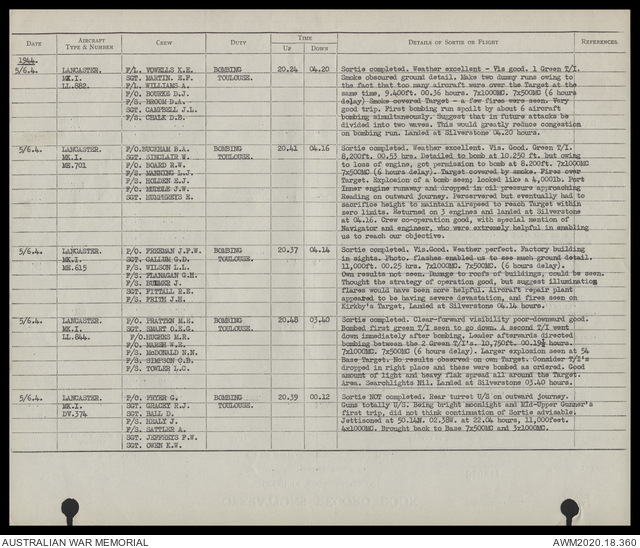 DATE AIRCRAFT TYPE & NUMBER CREW DUTY TIME UP DOWN DETAILS OF SORTIE OR FLIGHT REFERENCES
1944.
5/6.4. LANCASTER. F/L. VOWELLS K.E. BOMBING 20.24 04.20 Sortie completed. Weather excellent - Vis good. 1 Green T/I.
MK.I. SGT. MARTIN. E.F. TOULOUSE. Smoke obscured ground detail. Make two dummy runs owing to
LL.882. F/L. WILLIAMS A. the fact that too many aircraft were over the Target at the
F/O. BOURKE D.J. same time, 9.400ft. 00.36 hours. 7x1000MC, 7x500MC (6 hours
F/S. BROOM D.A. delay) Smoke covered Target - a few fires were seen. Very
SGT. CAMPBELL J.L. good trip. First bombing run spoilt by about 6 aircraft
F/S. CHALK D.B. bombing simultaneously. Suggest that in future attacks be
divided into two waves. This would greatly reduce congestion
on bombing run. Landed at Silverstone 04.20 hours.
5/6.4. LANCASTER. F/O. BUCKMAN B.A. BOMBING 20.41 04.16 Sortie completed. Weather excellent. Vis. Good. Green T/I.
MK.I. SGT. SINCLAIR W. TOULOUSE. 8,200ft. 00.53 hrs. Detailed to bomb at 10.250 ft. but owing
ME.701 F/O. BOARD R.W. to loss of engine, got permission to bomb at 8.200ft. 7x1000MC
F/S. MANNING L.J. 7x500MC (6 hours delay). Target covered by smoke. Fires over
F/S. HOLDEN E.J. Target. Explosion of a bomb seen; looked like a 4,000lb. Port
F/O. MUDDLE J.W. Inner engine runaway and dropped in oil pressure approaching
SGT. HUMPHREYS R. Reading on outward journey. Perservered but eventually had to
sacrifice height to maintain airspeed to reach Target within
zero limits. Returned on 3 engines and landed at Silverstone
at 04.16. Crew co-operation good, with special mention of
Navigator and engineer, who were extremely helpful in enabling
us to reach our objective.
5/6.4. LANCASTER. P/O. FREEMAN J.F.W. BOMBING 20.37 04.14 Sortie completed. Vis.Good. Weather perfect. Factory building
MK.I. SGT. CALLUM G.D. TOULOUSE. in sights. Photo. flashes enabled us to see much ground detail.
ME.615 F/S. WILSON L.L. 11,000ft. 00.25 hrs. 7x1000MC. 7x500MC. (6 hours delay).
F/S. FLANAGAN G.H. Own results not seen. Damage to roofs of buildings, could be seen.
F/S. J. Thought the strategy of operation good, but suggest illumination
SGT. PITTALL R.E. flares would have been more helpful. Aircraft repair plant
F/S. FRITH J.H. appeared to be having severe devastation, and fires seen on
Kirby's Target, Landed at Silverstone 04.14 hours.
5/6.4. LANCASTER. P/O. PRATTEN M.E. BOMBING 20.48 03.40 Sortie completed. Clear-forward visibility poor-downward good.
MK.I. SGT. SMART O.E.G. TOULOUSE. Bombed first green T/I seen to go down. A second T/I went
LL.844. F/O.HUGHES M.R. down immediately after bombing. Leader afterwards directed
F/O. MARSH W.E. bombing between the 2 Green T/I's. 10,750ft. 00.19½ hours.
F/S. McDONALD N.N. 7x1000MC. 7x500MC (6 hours delay). Larger explosion seen at 54
F/S. SIMPSON O.B. Base Target. No results observed on own Target. Consider T/I's
F/S. TOWLER L.C. dropped in right place and these were bombed as ordered. Good
amount of light and heavy flak spread all around the Target.
Area. Searchlights Nil. Landed at Silverstone 03.40 hours.
5/6.4. LANCASTER. P/O. FRYER G. BOMBING 20.39 00.12 Sortie NOT completed. Rear turret U/S on outward journey.
MK.I. SGT. GRACEY R.J. TOULOUSE. Guns totally U/S. Being bright moonlight and Mid-Upper Gunner's
DV.374 SGT. BALL D. first trip, did not think continuation of Sortie advisable,
F/S. HEALY J. Jettisoned at 50.14N. 02.38W. at 22.04 hours, 11,000feet.
F/S. SATTLER A. 4x1000MC. Brought back to Base 7x500MC and 3x1000MC.
SGT. JEFFREYS F.W.
SGT. OWEN K.W.
AUSTRALIAN WAR MEMORIAL AWM2020.18.360